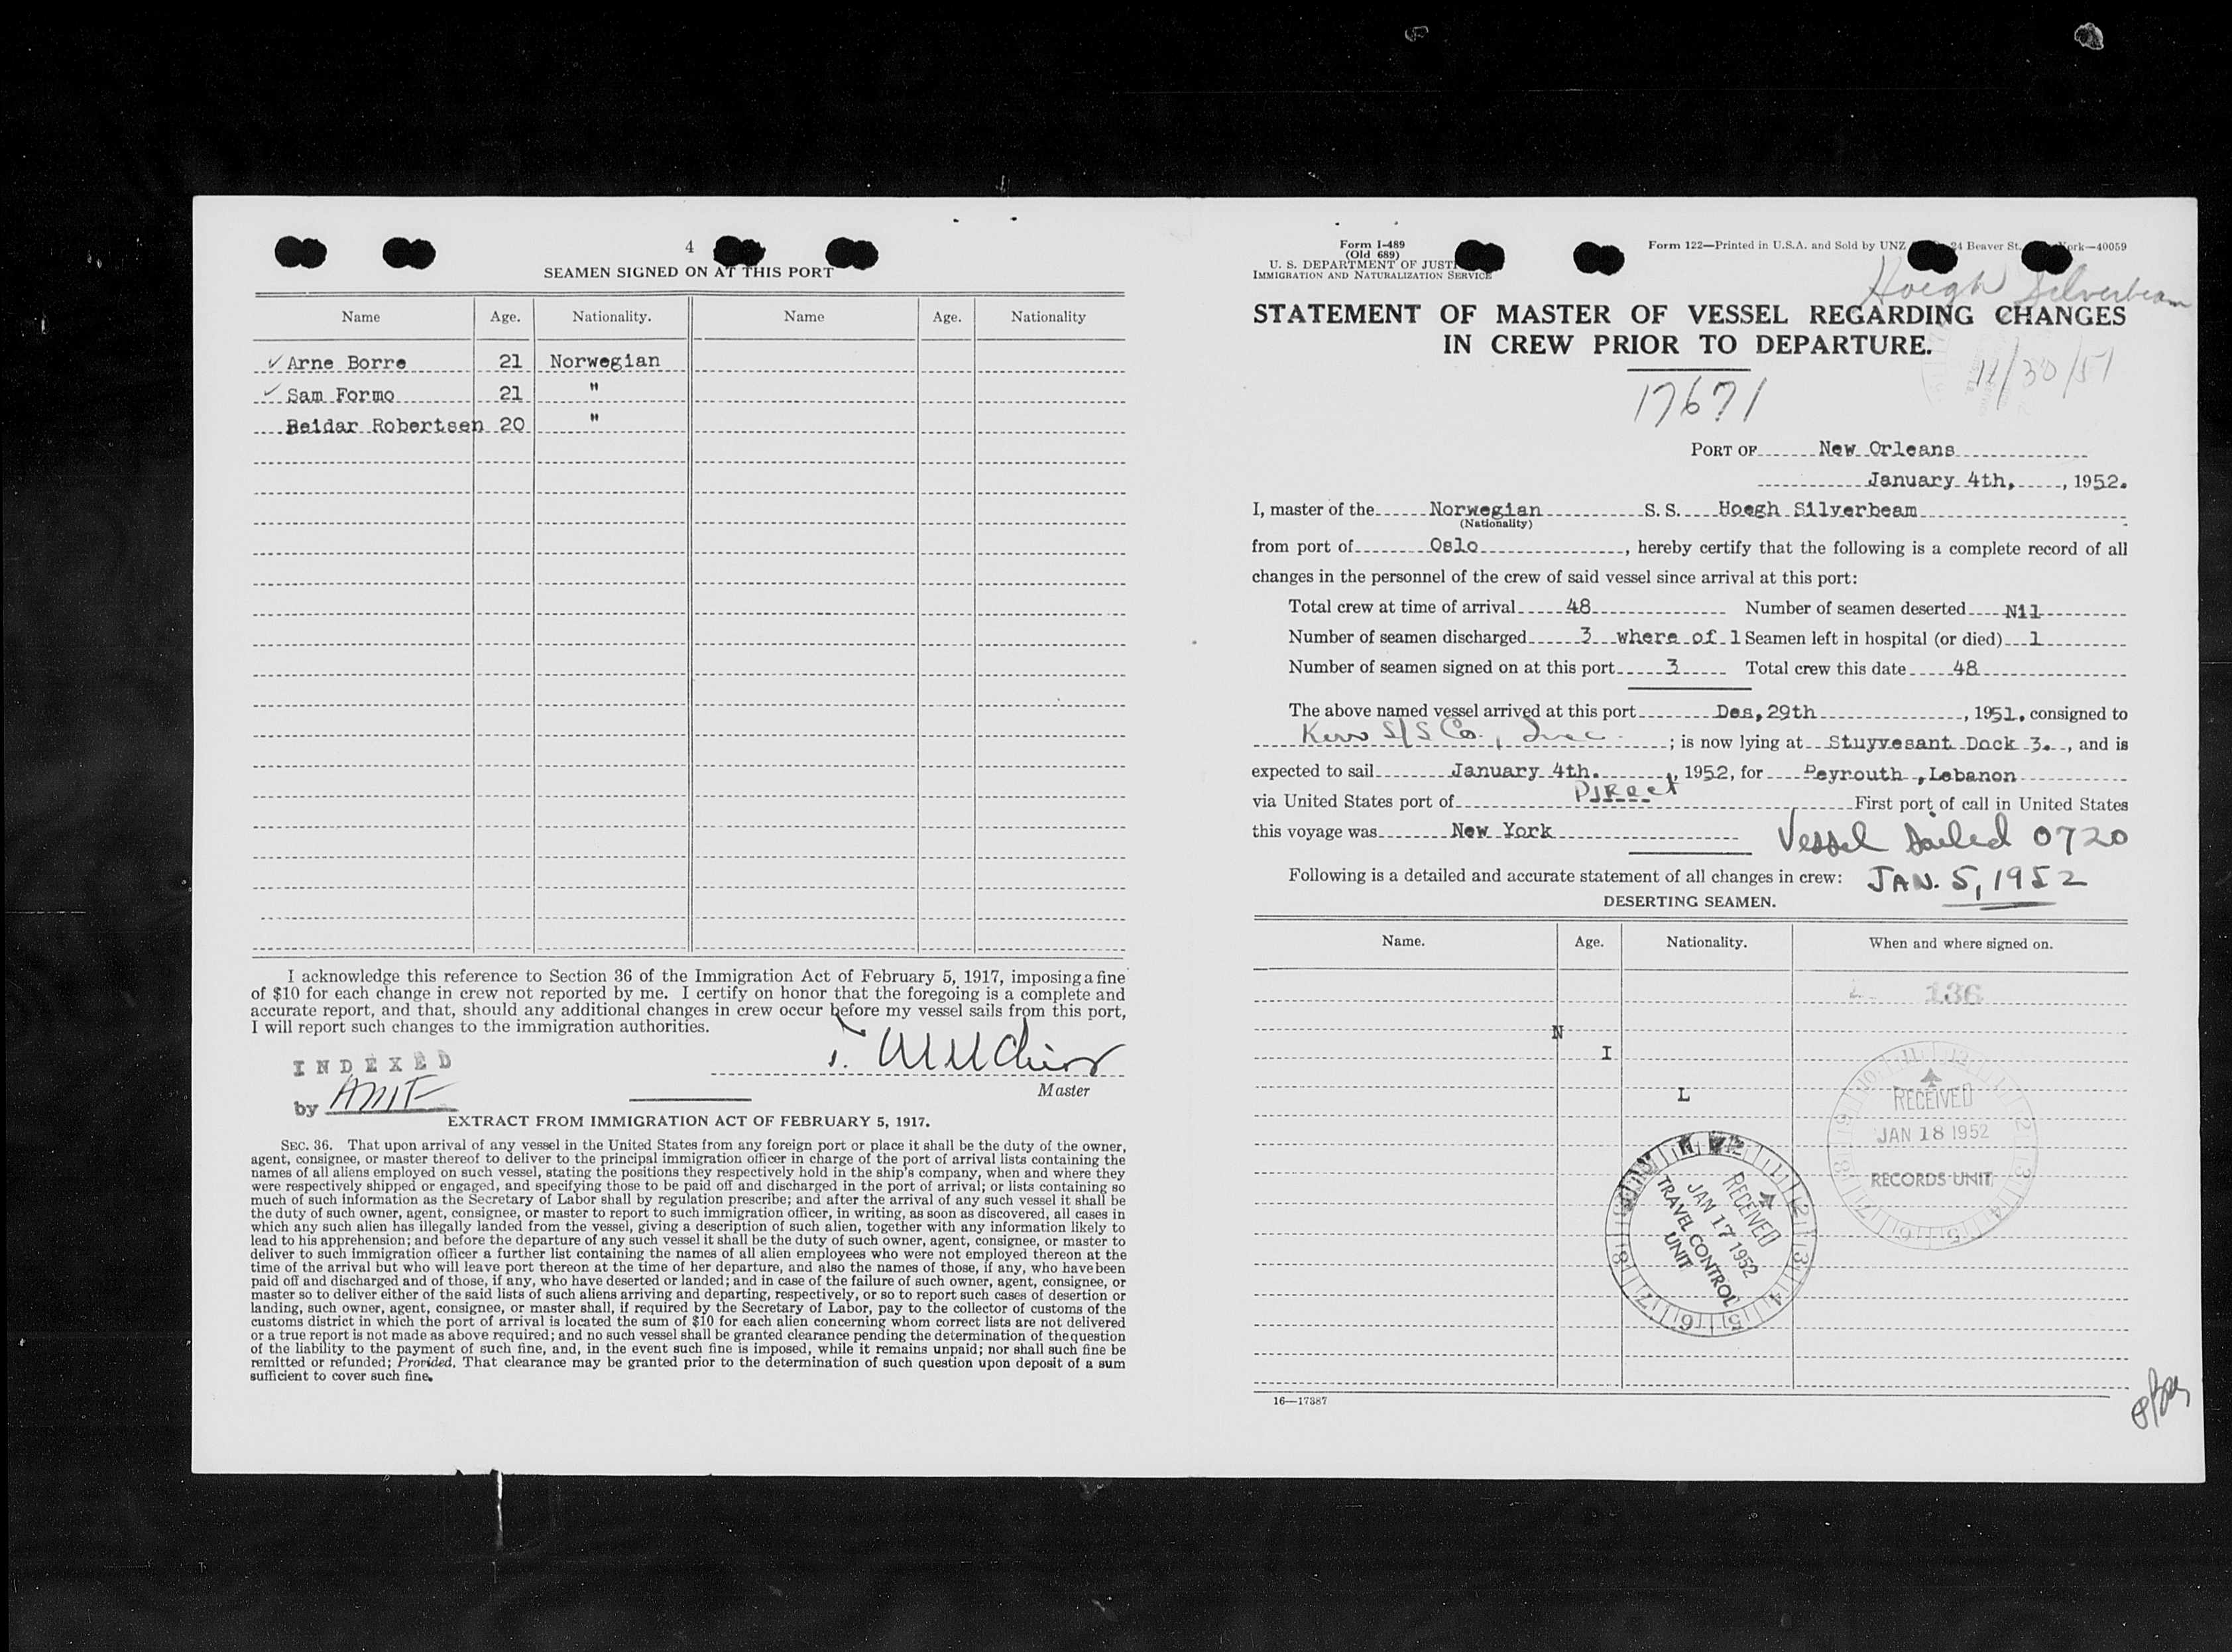 4
SEAMEN SIGNED ON AT THIS PORT
Name Age. Nationality. Name Age. Nationality
✓ Arne Borre 21 Norwegian
✓ Sam Formo 21 "
Reidar Robertsen 20 "
I acknowledge this reference to Section 36 of the Immigration Act of February 5, 1917, imposing a fine
of $10 for each change in crew not reported by me. I certify on honor that the foregoing is a complete and
accurate report, and that, should any additional changes in crew occur before my vessel sails from this port,
I will report such changes to the immigration authorities.
INDEXED
by AMF
Master
EXTRACT FROM IMMIGRATION ACT OF FEBRUARY 5, 1917.
SEC. 36. That upon arrival of any vessel in the United States from any foreign port or place it shall be the duty of the owner,
agent, consignee, or master thereof to deliver to the principal immigration officer in charge of the port of arrival lists containing the
names of all aliens employed on such vessel, stating the positions they respectively hold in the ship's company, when and where they
were respectively shipped or engaged, and specifying those to be paid off and discharged in the port of arrival; or lists containing so
much of such information as the Secretary of Labor shall by regulation prescribe; and after the arrival of any such vessel it shall be
the duty of such owner, agent, consignee, or master to report to such immigration officer, in writing, as soon as discovered, all cases in
which any such alien has illegally landed from the vessel, giving a description of such alien, together with any information likely to
lead to his apprehension; and before the departure of any such vessel it shall be the duty of such owner, agent, consignee, or master to
deliver to such immigration officer a further list containing the names of all alien employees who were not employed thereon at the
time of the arrival but who will leave port thereon at the time of her departure, and also the names of those, if any, who have been
paid off and discharged and of those, if any, who have deserted or landed; and in case of the failure of such owner, agent, consignee, or
master so to deliver either of the said lists of such aliens arriving and departing, respectively, or so to report such cases of desertion or
landing, such owner, agent, consignee, or master shall, if required by the Secretary of Labor, pay to the collector of customs of the
customs district in which the port of arrival is located the sum of $10 for each alien concerning whom correct lists are not delivered
or a true report is not made as above required; and no such vessel shall be granted clearance pending the determination of the question
of the liability to the payment of such fine, and, in the event such fine is imposed, while it remains unpaid; nor shall such fine be
remitted or refunded; Provided, That clearance may be granted prior to the determination of such question upon deposit of a sum
sufficient to cover such fine.
Form I-489
(Old 689)
U. S. DEPARTMENT OF JUSTI
IMMIGRATION AND NATURALIZATION SERVICE
Form 122—Printed in U.S.A. and Sold by UNZ 24 Beaver St. ork—40059
Hoegh Silverbeam
STATEMENT OF MASTER OF VESSEL REGARDING CHANGES
IN CREW PRIOR TO DEPARTURE.
11/30/51
17671
PORT OF New Orleans
January 4th, , 1952.
I, master of the Norwegian S. S. Hoegh Silverbeam
(Nationality)
from port of Oslo , hereby certify that the following is a complete record of all
changes in the personnel of the crew of said vessel since arrival at this port:
Total crew at time of arrival 48 Number of seamen deserted Nil
Number of seamen discharged 3 where of 1 Seamen left in hospital (or died) 1
Number of seamen signed on at this port 3 Total crew this date 48
The above named vessel arrived at this port Des, 29th , 1951, consigned to
Kerr S/S Co., Inc. ; is now lying at Stuyvesant Dock 3. , and is
expected to sail January 4th. , 1952, for Beyrouth , Lebanon
via United States port of Direct First port of call in United States
this voyage was New York
Vessel sailed 0720
Following is a detailed and accurate statement of all changes in crew: JAN. 5, 1952
DESERTING SEAMEN.
Name. Age. Nationality. When and where signed on.
136
N
I
L
RECEIVED
JAN 18 1952
RECORDS UNIT
RECEIVED
JAN 17 1952
TRAVEL CONTROL
UNIT
16—17387